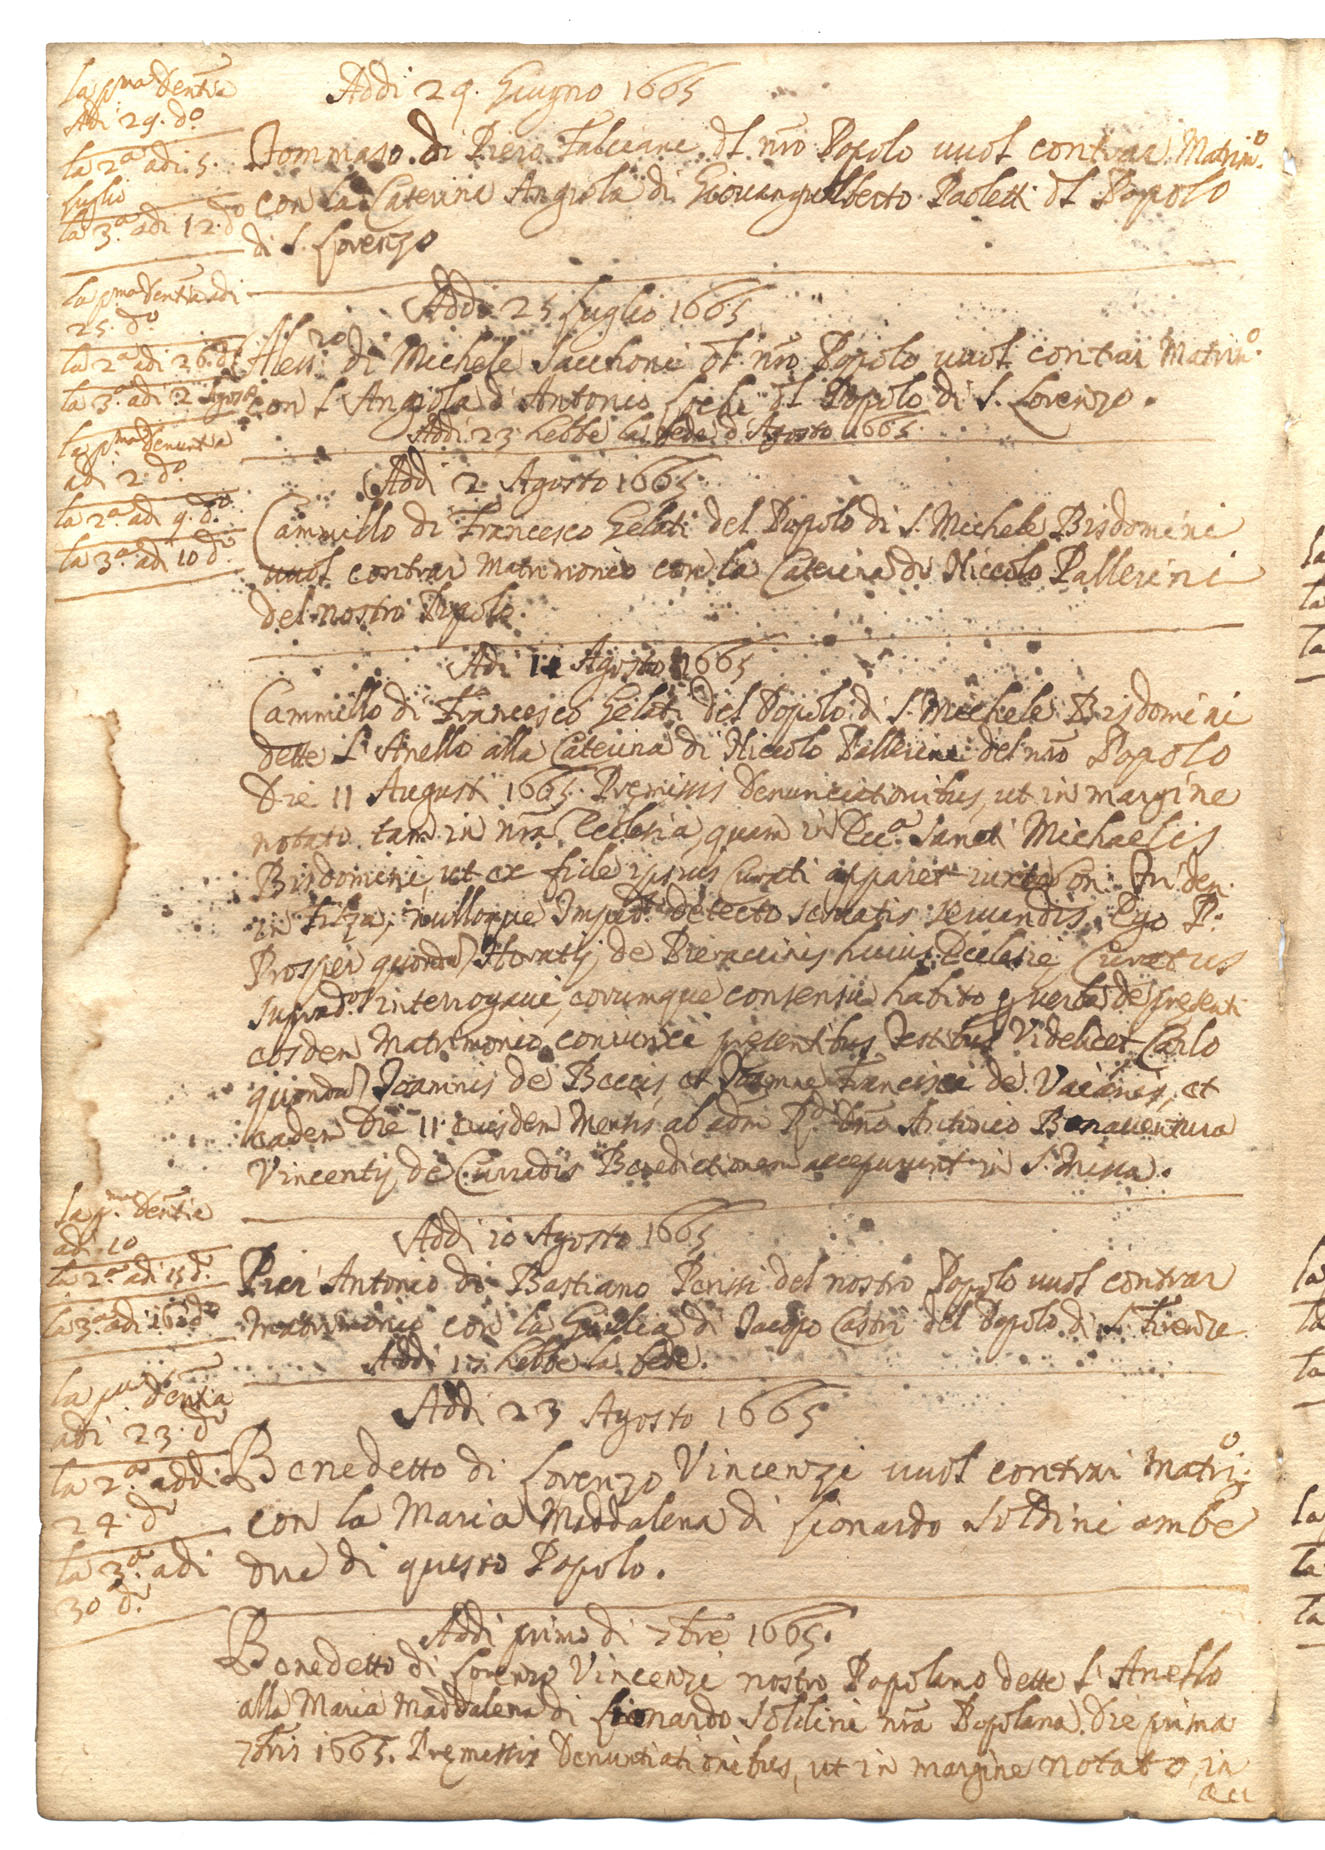 La p.ma Dentia
Adi 29. d.o
la 2.a adi 5.
luglio
la 3.a adi 12. d.o
Addi 29. Giugno 1665
Tommaso di Piero Falciani dl nro Popolo vuol contrar Matrim.o
con la Caterina Angiola di Giovangualberto Paoletti dl Popolo
di S. Lorenzo
la p.ma Dentia adi
25. d.o
la 2.a adi 26. d.o
la 3.a adi 2 Agosto
Addi 25 luglio 1665
Aless.ro di Michele Sacchoni dl nro Popolo vuol contrar Matrim.o
con l'Angiola d'Antonio dl Popolo di S. Lorenzo.
Addi 23 hebbe la fede d'Agosto 1665.
la p.ma Denuntia
adi 2 d.o
la 2.a adi 9. d.o
la 3.a adi 10 d.o
Addi 2 Agosto 1665
Cammillo di Francesco Gelati del Popolo di S. Michele Bisdomini
vuol contrar Matrimonio con la Caterina di Niccolo Pallerini
del nostro Popolo.
Adi 11 Agosto 1665
Cammillo di Francesco Gelati del Popolo di S. Michele Bisdomini
dette l'Anello alla Caterina di Niccolo Pallerini del nro Popolo
Die 11 Augusti 1665. Premissis Denunciationibus, ut in margine
notato tam in nra Ecclesia, quam in Ecc.a Sancti Michaelis
Bisdomini, ut ex fide ipsius Curati apparet iuxta
in Filza, nulloque Imped.to detecto servatis servandis, Ego P.
Prosper quondam Horatij de Pieraccinis huius Ecclesie Curatus
suprad.os interrogavi, eorumque consensu habito p verba de presenti
eosdem Matrimonio coniunxi presentibus Testibus Videlicet Carlo
quondam Joannis de Boccis, et Francisci de Vaianis, et
eadem Die 11 eiusdem Mensis ab adm R.do Dno Antonio Bonaventura
Vincentij de Curradis Benedictionem acceperunt in S. Missa.
La p.ma dentia
adi 10
la 2.a adi 15 d.o
la 3.a adi 16 d.o
Addi 10 Agosto 1665
Pier Antonio di Bastiano Perini del nostro Popolo vuol contrar
Matrimonio con la Giulia di Jacopo Castri del Popolo di S. Firenze
Addi 17 hebbe la fede.
la p.ma Dentia
adi 23. d.o
la 2.a addi
24. d.o
la 3.a adi
30 d.o
Addi 23 Agosto 1665
Benedetto di Lorenzo Vincenzi vuol contrar Matri.o
con la Maria Maddalena di Lionardo Soldini ambe
due di questo Popolo.
Addi primo di 7bre 1665.
Benedetto di Lorenzo Vincenzi nostro Popolano dette l'Anello
alla Maria Maddalena di Lionardo Soldini nra Popolana. Die prima
7bris 1665. Premissis Denuntiationibus, ut in margine notato, in